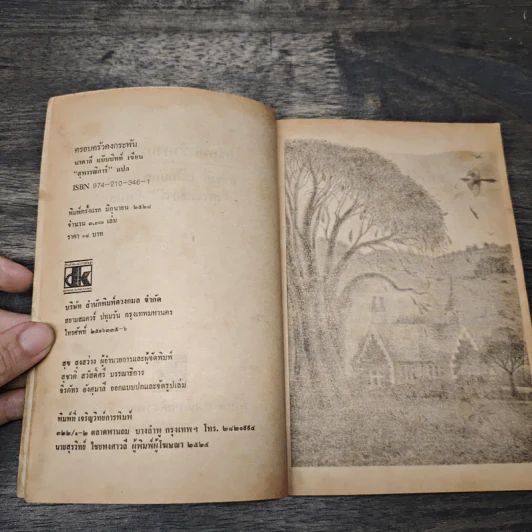 ครอบครัวดงกระพัน
นาตาลี แบ๊บบิทท์ เขียน
"สุพรรณิการ์" แปล
ISBN 974-210-346-1
พิมพ์ครั้งแรก มิถุนายน ๒๕๒๔
จำนวน ๓,๐๐๐ เล่ม
ราคา ๑๘ บาท
dk
บริษัท สำนักพิมพ์ดวงกมล จำกัด
สยามสแควร์ ปทุมวัน กรุงเทพมหานคร
โทรศัพท์ ๒๕๑๖๓๓๕-๖
สุข สูงสว่าง ผู้อำนวยการและผู้จัดพิมพ์
สุชาติ สวัสดิ์ศรี บรรณาธิการ
จิรภัทร อังศุมาลี ออกแบบปกและจัดรูปเล่ม
พิมพ์ที่ เจริญวิทย์การพิมพ์
๓๒๒/๑-๒ ตลาดพานถม บางลำพู กรุงเทพฯ โทร.
นายสุรวิทย์ ไชยพงศาวลี ผู้พิมพ์ผู้โฆษณา ๒๕๒๔